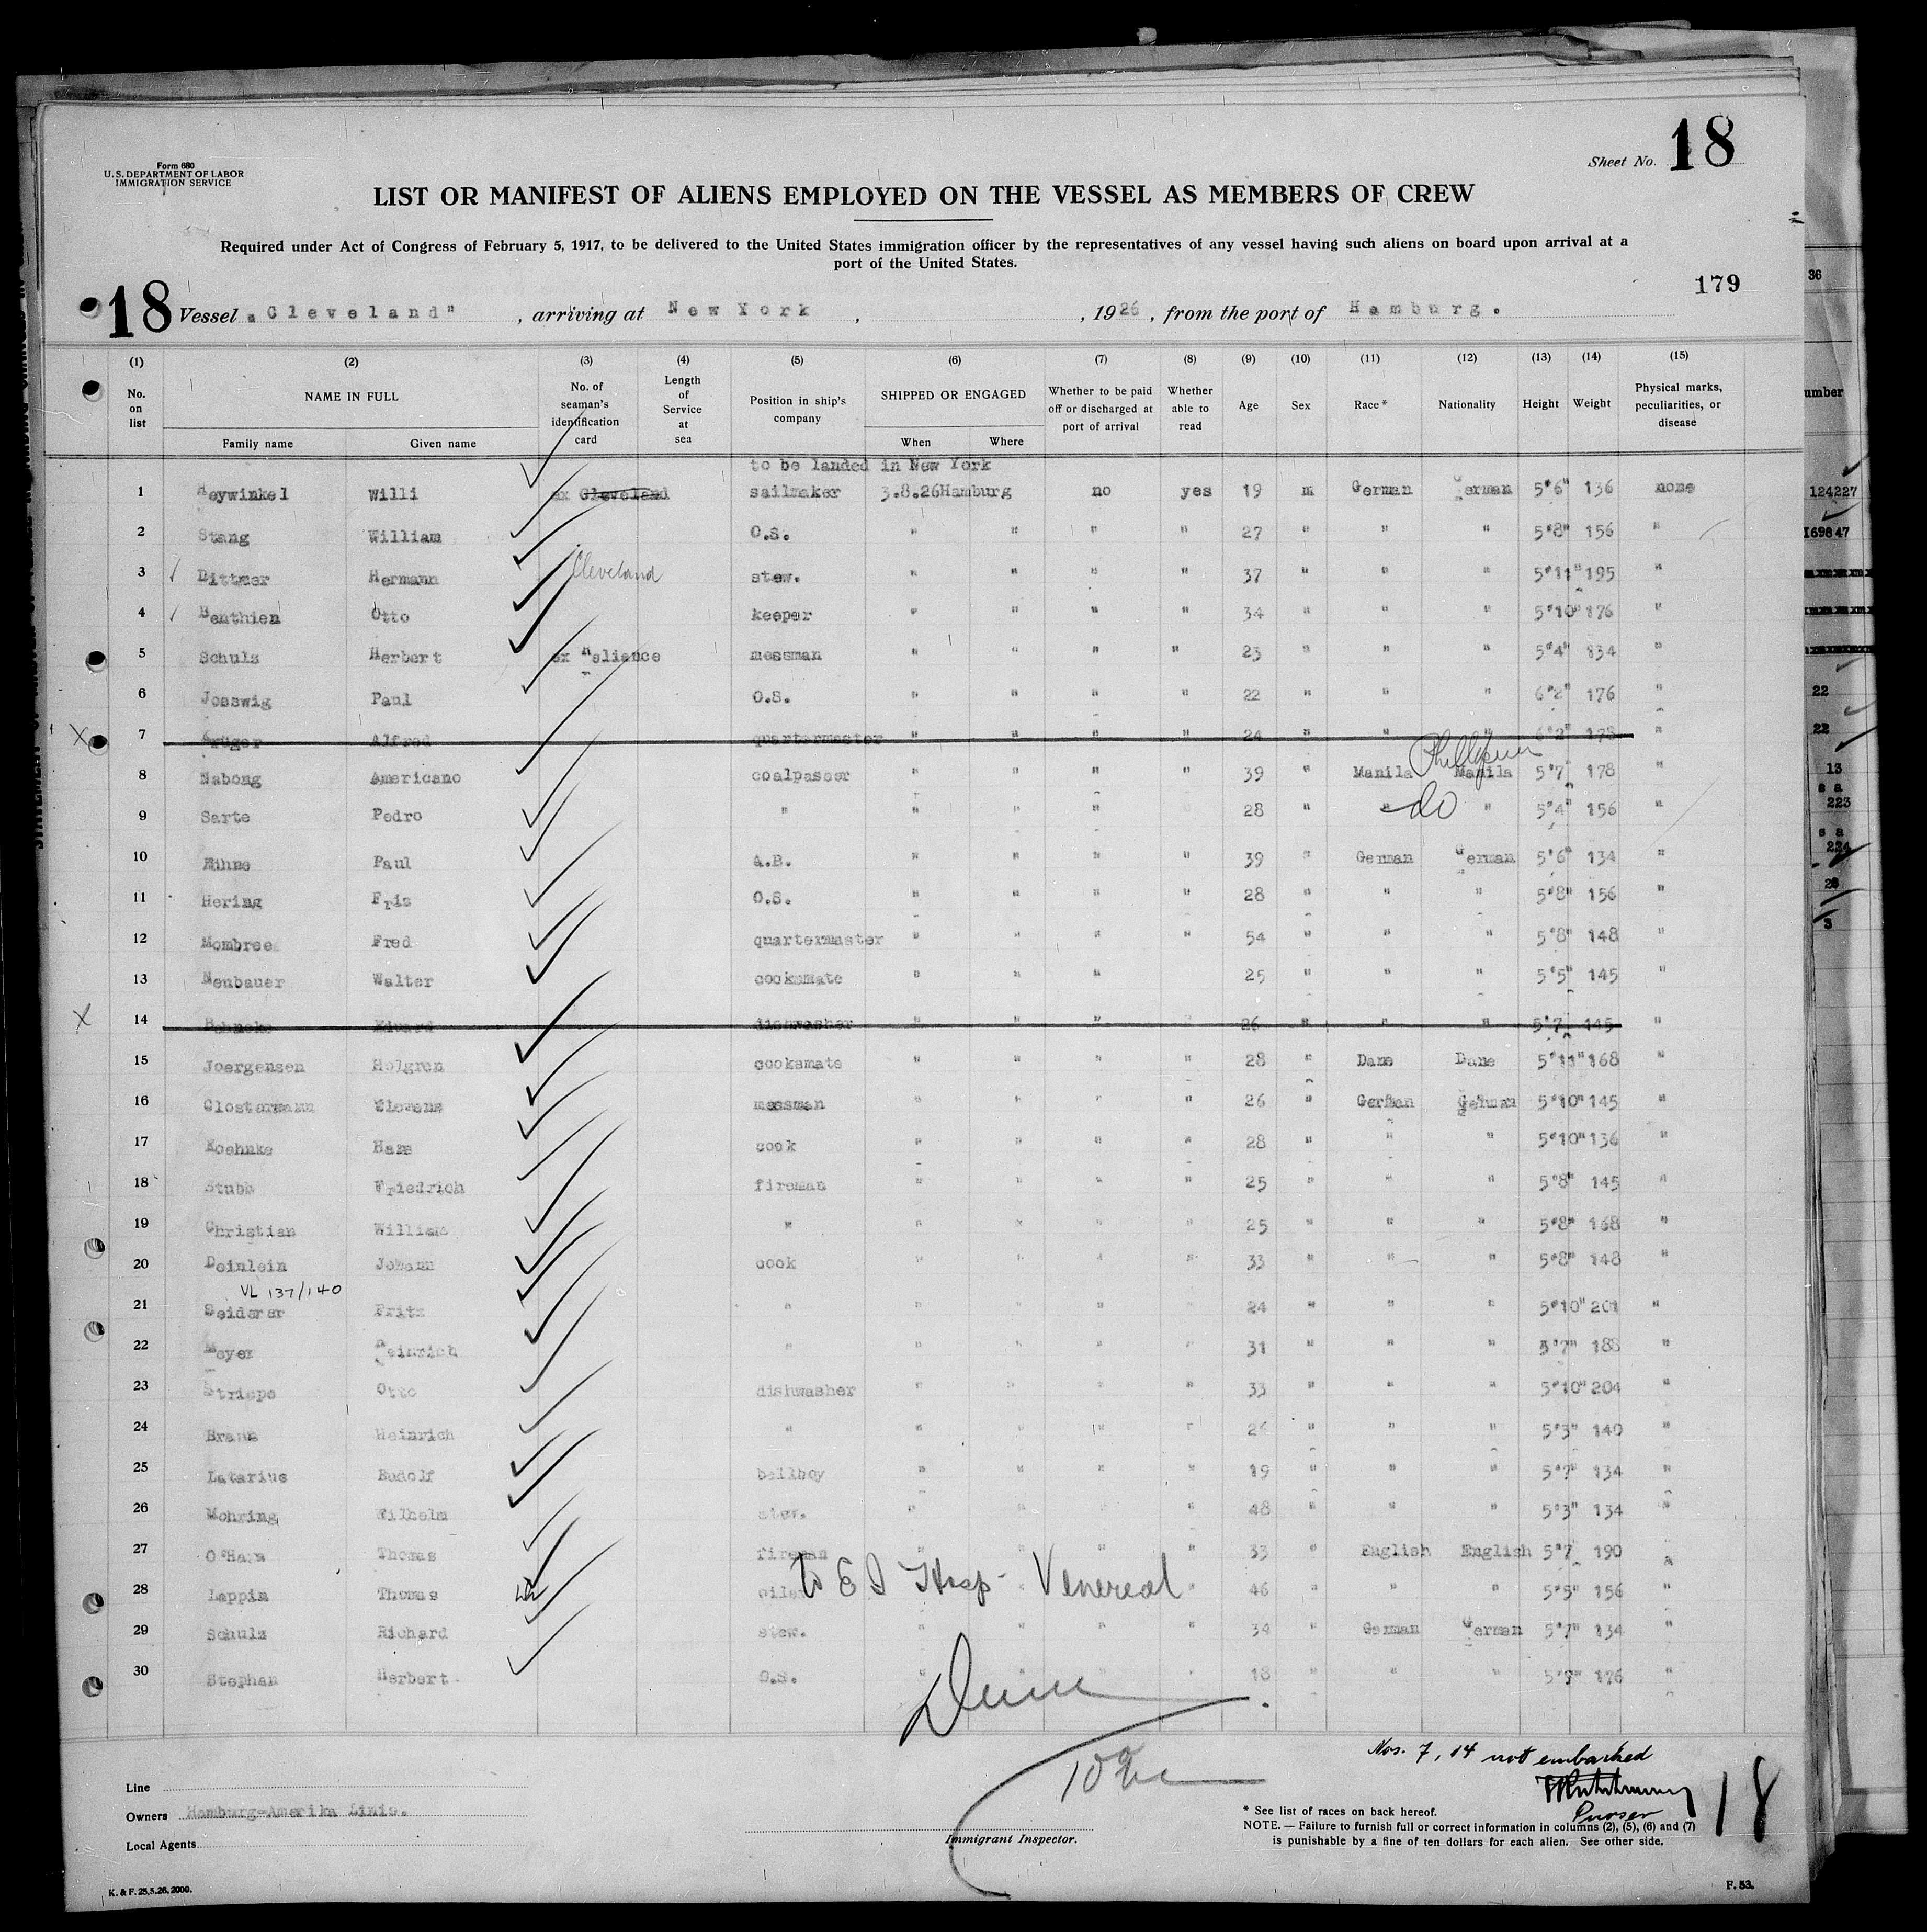 Form 680
U. S. DEPARTMENT OF LABOR
IMMIGRATION SERVICE
Sheet No. 18
LIST OR MANIFEST OF ALIENS EMPLOYED ON THE VESSEL AS MEMBERS OF CREW
Required under Act of Congress of February 5, 1917, to be delivered to the United States immigration officer by the representatives of any vessel having such aliens on board upon arrival at a
port of the United States.
179
18 Vessel „Cleveland" , arriving at New York , , 1926 , from the port of Hamburg.
(1) (2) (3) (4) (5) (6) (7) (8) (9) (10) (11) (12) (13) (14) (15)
No. on list NAME IN FULL No. of seaman's identification card Length of Service at sea Position in ship's company SHIPPED OR ENGAGED Whether to be paid off or discharged at port of arrival Whether able to read Age Sex Race* Nationality Height Weight Physical marks, peculiarities, or disease
Family name Given name When Where
to be landed in New York
1 Heywinkel Willi ex Cleveland sailmaker 3.8.26 Hamburg no yes 19 m German German 5'6" 136 none
2 Stang William O.S. " " " " 27 " " " 5'8" 156 "
3 Dittmer Hermann Cleveland stew. " " " " 37 " " " 5'11" 195 "
4 Benthien Otto keeper " " " " 34 " " " 5'10" 176 "
5 Schulz Herbert ex Reliance messman " " " " 23 " " " 5'4" 134 "
6 Josswig Paul O.S. " " " " 22 " " " 6'2" 176 "
X 7 Krüger Alfred quartermaster " " " " 24 " " " 6'2" 178 "
Phillipine
8 Nabong Americano coalpasser " " " " 39 " Manila Manila 5'7 178 "
9 Sarte Pedro " " " " 28 " " do " 5'4" 156 "
10 Paul A.B. " " " " 39 " German German 5'6" 134 "
11 Hering Fris O.S. " " " " 28 " " " 5'8" 156 "
12 Mombree Fred quartermaster " " " " 54 " " " 5'8" 148 "
13 Neubauer Walter cooksmate " " " 25 " " " 5'5" 145 "
X 14 Behncke Eduard dishwasher " " " 26 " " " 5'7 145 "
15 Joergensen Holgren cooksmate " " " " 28 " Dane Dane 5'11" 168 "
16 Clostermann messman " " " " 26 " German German 5'10" 145 "
17 Koehnke Hans cook " " " " 28 " " " 5'10" 136 "
18 Stubb Friedrich fireman " " " " 25 " " " 5'8" 145 "
19 Christian William " " " " " 25 " " " 5'8" 168 "
20 Deinlein Johann cook " " " " 33 " " " 5'8" 148 "
VL 137/140
21 Seiderer Fritz " " " " " 24 " " " 5'10" 201 "
22 Meyer Heinrich " " " " " 31 " " " 5'7" 188 "
23 Striepe Otto dishwasher " " " " 33 " " " 5'10" 204 "
24 Braun Heinrich " " " " " 24 " " " 5'3" 140 "
25 Latarius Rudolf bellboy " " " " 19 " " " 5'7" 134 "
26 Mohring Wilhelm stew. " " " 48 " " " 5'3" 134 "
27 O'Hara Thomas fireman " " " " 33 " English English 5'7 190
28 Lappin Thomas to E I Hosp - Venereal 46 " " " 5'5" 156 "
29 Schulz Richard stew. " " " " 34 " German German 5'7" 134 "
30 Stephan Herbert O.S. " " " " 18 " " " 176 "
Nos. 7, 14 not embarked
Purser
18
Line
Owners Hamburg-Amerika Linie.
Local Agents
Immigrant Inspector.
* See list of races on back hereof.
NOTE. — Failure to furnish full or correct information in columns (2), (5), (6) and (7)
is punishable by a fine of ten dollars for each alien. See other side.
K. & F. 25.5.26. 2000.
F. 53.
36
umber
124227
169847
22
22
13
s a
223
s a
224
3